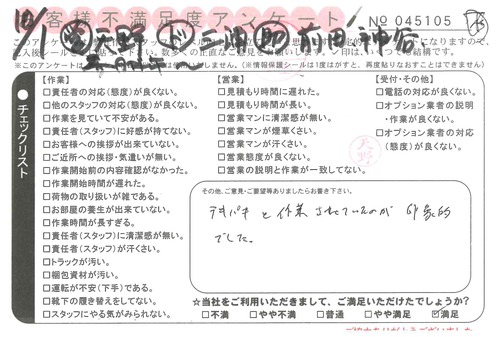 お客様不満足度アンケート
№ 045105
天野 三浦 前田 神谷
【作業】
□責任者の対応(態度)が良くない。
□他のスタッフの対応(態度)が良くない。
□作業を見ていて不安がある。
□責任者(スタッフ)に好感が持てない。
□お客様への挨拶が出来ていない。
□ご近所への挨拶・気遣いが無い。
□作業開始前の内容確認がなかった。
□作業開始時間が遅れた。
□荷物の取り扱いが雑である。
□お部屋の養生が出来ていない。
□作業時間が長すぎる。
□責任者(スタッフ)に清潔感が無い。
□責任者(スタッフ)が汗くさい。
□トラックが汚い。
□梱包資材が汚い。
□運転が不安(下手)である。
□靴下の履き替えをしてない。
□スタッフにやる気がみられない。
【営業】
□見積もり時間に遅れた。
□見積もり時間が長い。
□営業マンに清潔感が無い。
□営業マンが煙草くさい。
□営業マンが汗くさい。
□営業態度が良くない。
□営業の説明と作業が一致してない。
【受付・その他】
□電話の対応が良くない。
□オプション業者の説明
・作業が良くない。
□オプション業者の対応
(態度)が良くない。
天野
チェックリスト
その他、ご意見・ご要望等ありましたらお書き下さい。
テキパキと作業されていたのが印象的
でした。
☆当社をご利用いただきまして、ご満足いただけたでしょうか?
□不満 □やや不満 □普通 □やや満足 ☑満足